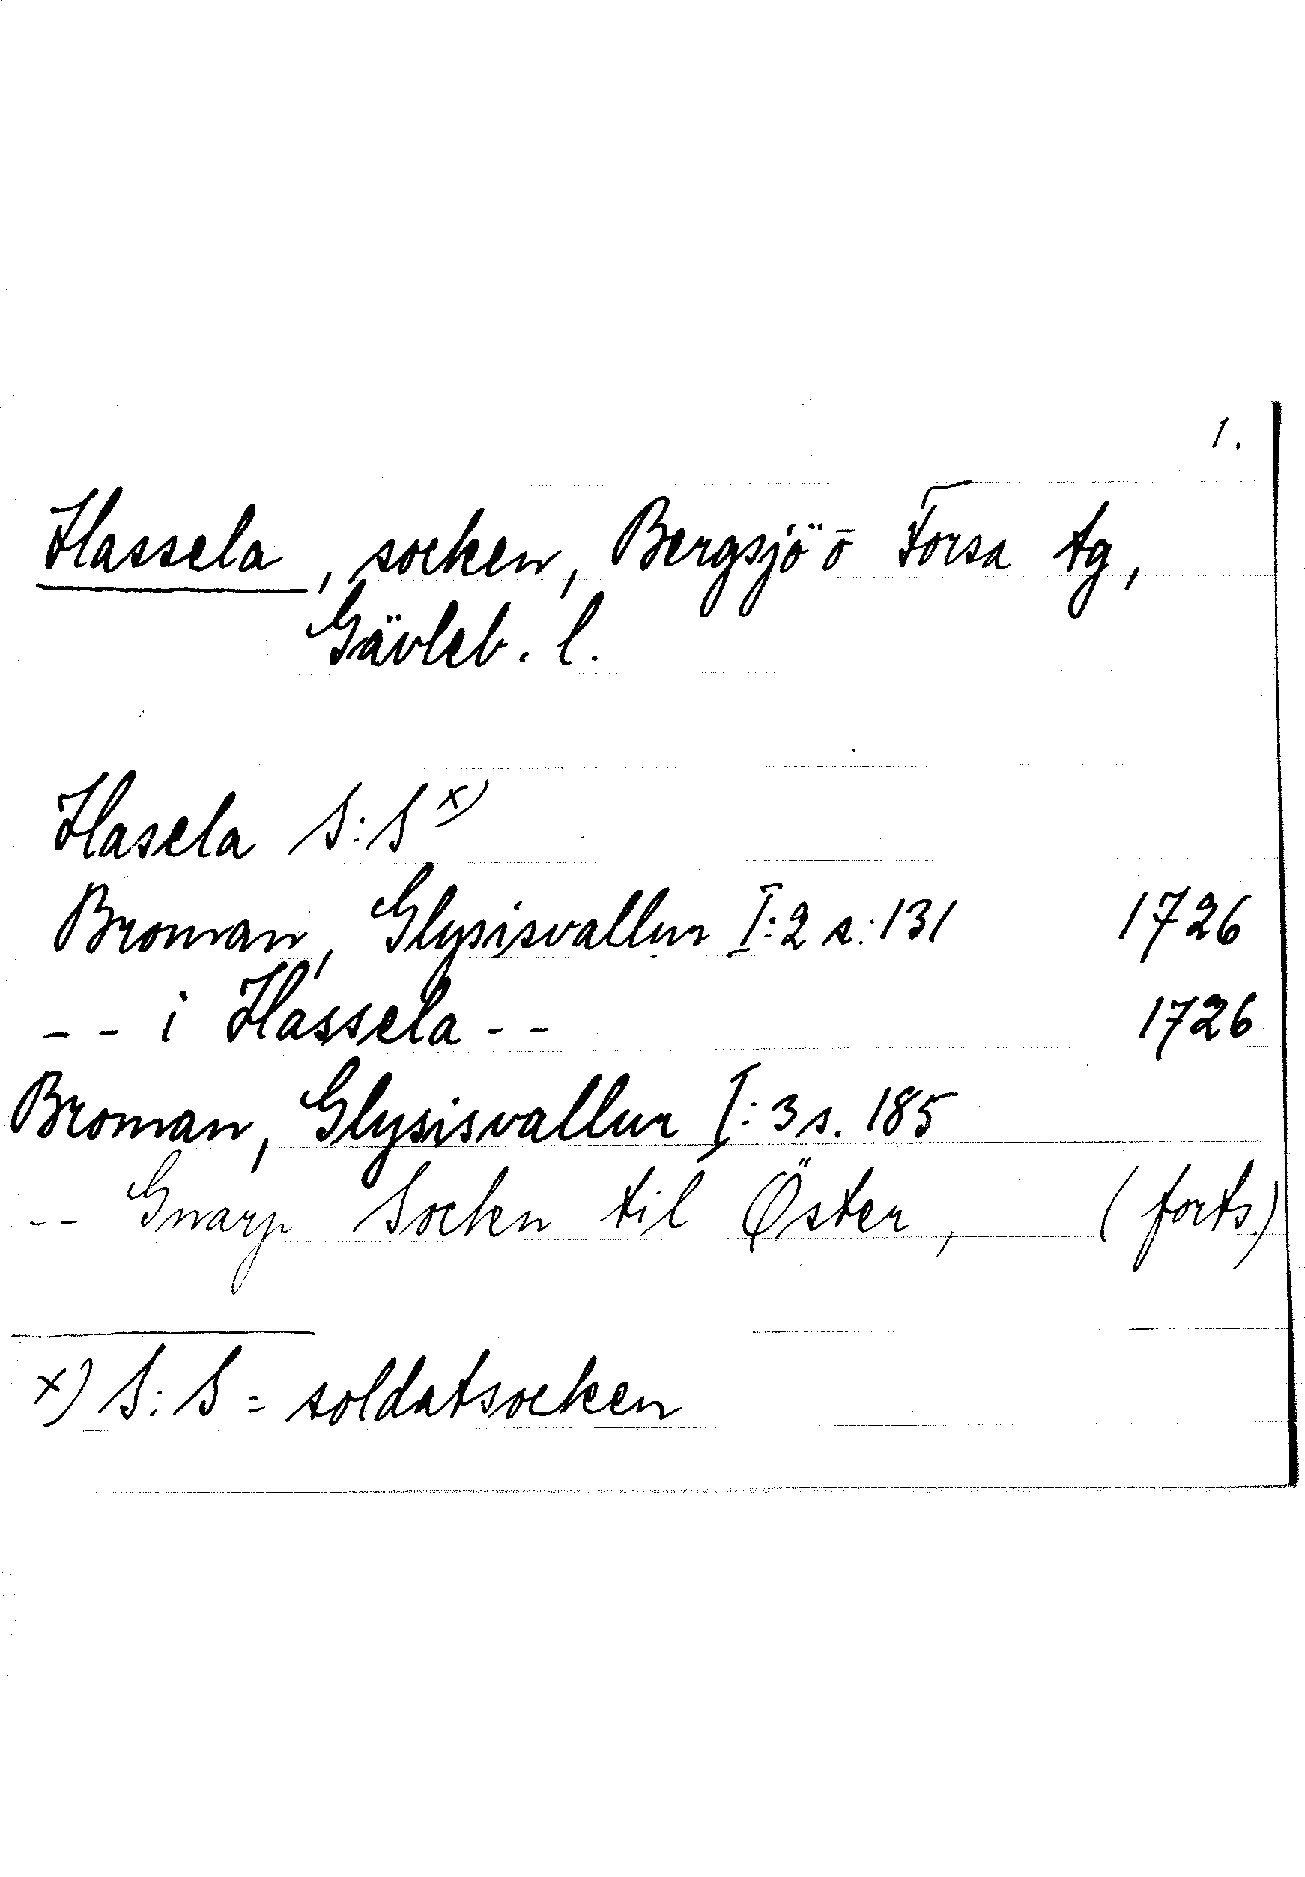 1.
Hassela, socken, Bergsjö o Forsa tg,
Gävleb. l.
Hasela S:S x)
Broman, Glysisvallur I:2 s:131 1726
-- i Hassela -- 1726
Broman, Glysisvallur I:3 s. 185
-- Gnarp Sockn til Öster, (forts)
x) S:S = soldatsocken